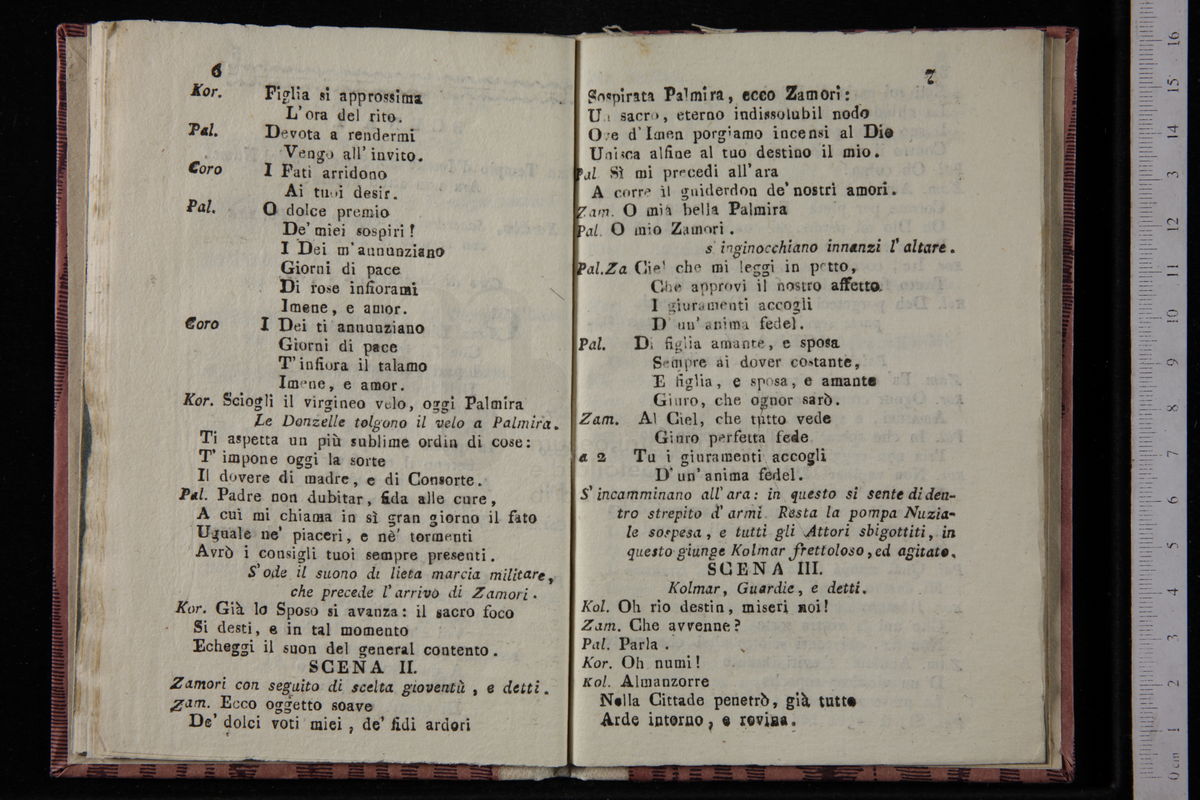 6
Kor. Figlia si approssima
L'ora del rito.
Pal. Devota a rendermi
Vengo all' invito.
Coro I Fati arridono
Ai tuoi desir.
Pal. O dolce premio
De' miei sospiri!
I Dei m' annunziano
Giorni di pace
Di rose infiorami
Imene, e amor.
Coro I Dei ti annunziano
Giorni di pace
T' infiora il talamo
Imene, e amor.
Kor. Sciogli il virgineo velo, oggi Palmira
Le Donzelle tolgono il velo a Palmira.
Ti aspetta un più sublime ordin di cose:
T' impone oggi la sorte
Il dovere di madre, e di Consorte.
Pal. Padre non dubitar, fida alle cure,
A cui mi chiama in sì gran giorno il fato
Uguale ne' piaceri, e nè' tormenti
Avrò i consigli tuoi sempre presenti.
S' ode il suono di lieta marcia militare,
che precede l' arrivo di Zamori.
Kor. Già lo Sposo si avanza: il sacro foco
Si desti, e in tal momento
Echeggi il suon del general contento.
SCENA II.
Zamori con seguito di scelta gioventù, e detti.
Zam. Ecco oggetto soave
De' dolci voti miei, de' fidi ardori
7
Sospirata Palmira, ecco Zamori:
Un sacro, eterno indissolubil nodo
Ove d' Imen porgiamo incensi al Dio
Unisca alfine al tuo destino il mio.
Pal. Sì mi precedi all' ara
A corre il guiderdon de' nostri amori.
Zam. O mia bella Palmira
Pal. O mio Zamori.
s' inginocchiano innanzi l' altare.
Pal.Za Ciel che mi leggi in petto,
Che approvi il nostro affetto
I giuramenti accogli
D' un' anima fedel.
Pal. Di figlia amante, e sposa
Sempre ai dover costante,
E figlia, e sposa, e amante
Giuro, che ognor sarò.
Zam. Al Ciel, che tutto vede
Giuro perfetta fede
a 2 Tu i giuramenti accogli
D' un' anima fedel.
S' incamminano all' ara: in questo si sente di den-
tro strepito d' armi. Resta la pompa Nuzia-
le sospesa, e tutti gli Attori sbigottiti, in
questo giunge Kolmar frettoloso, ed agitato.
SCENA III.
Kolmar, Guardie, e detti.
Kol. Oh rio destin, miseri noi!
Zam. Che avvenne?
Pal. Parla.
Kor. Oh numi!
Kol. Almanzorre
Nella Cittade penetrò, già tutto
Arde intorno, e rovina.
0 cm 1 2 3 4 5 6 7 8 9 10 11 12 13 14 15 16